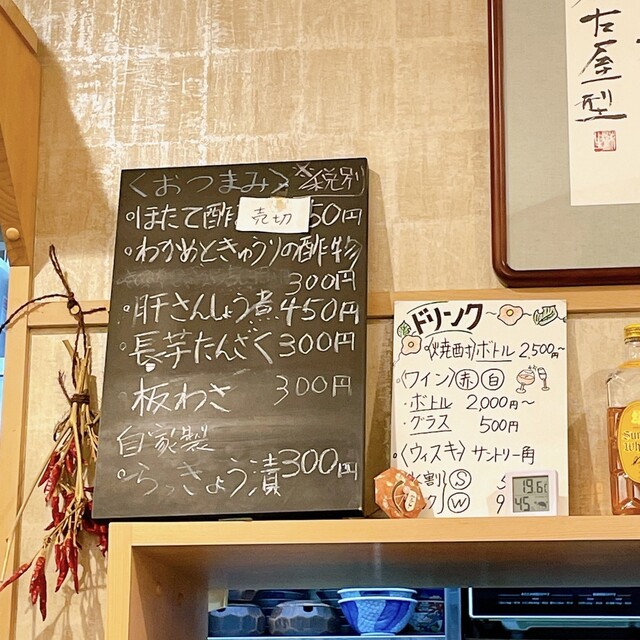 〈おつまみ〉※税別
・ほたて酢 売切 50円
・わかめときゅうりの酢物
300円
・肝さんしょう煮 450円
・長芋たんざく 300円
・板わさ 300円
自家製
・らっきょう漬 300円
古屋型
ドリンク
〈焼酎〉ボトル 2,500〜
〈ワイン〉赤 白
・ボトル 2,000円〜
・グラス 500円
・〈ウィスキー〉サントリー角
水割 S 5
W 9
19.6
45